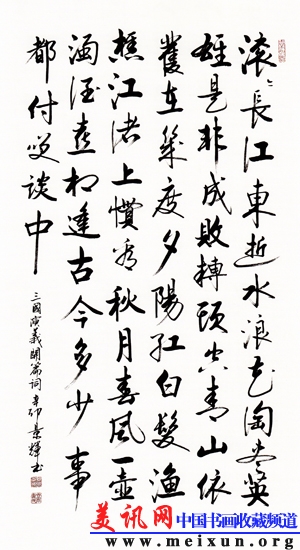 滚〻長江東逝水浪花淘盡英
雄是非成敗轉頭空青山依
舊在幾度夕陽紅白髮漁
樵江渚上慣看秋月春風一壺
濁酒喜相逢古今多少事
都付笑談中
三國演義開篇词辛卯景輝书
美讯网
中国书画收藏频道
www.meixun.org